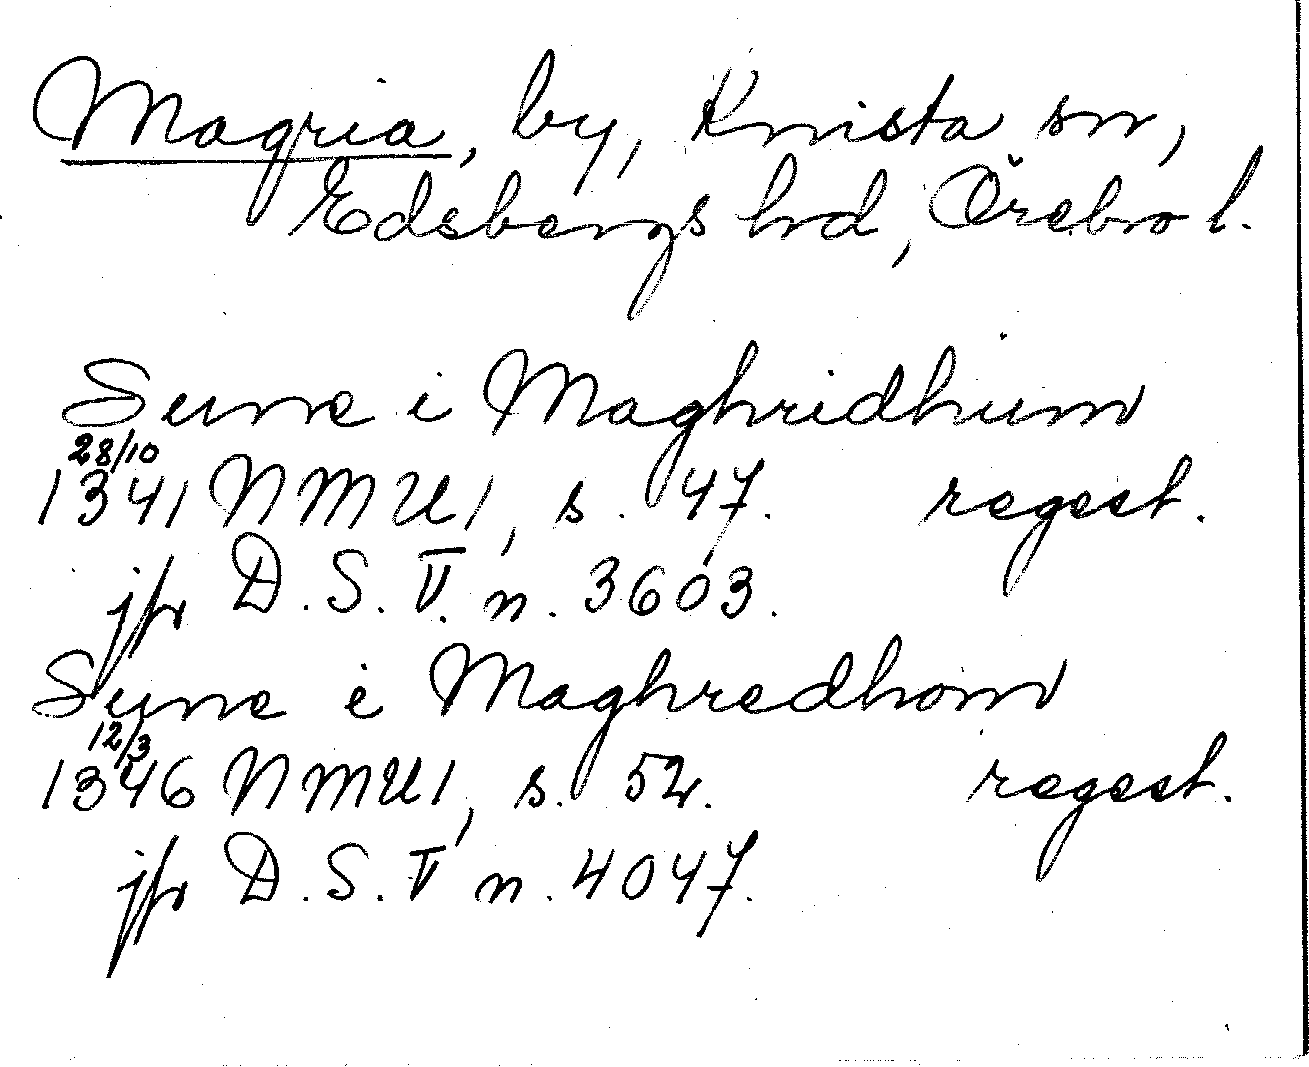 Magria, by, Knista sn,
Edsbergs hrd, Örebro l.
Sune i Maghridhum
28/10
1341 NMU1, s. 47. regest.
jfr D.S. V. n. 3603.
Sune i Maghredhom
12/3
1346 NMU1, s. 52. regest.
jfr D.S. V n. 4047.